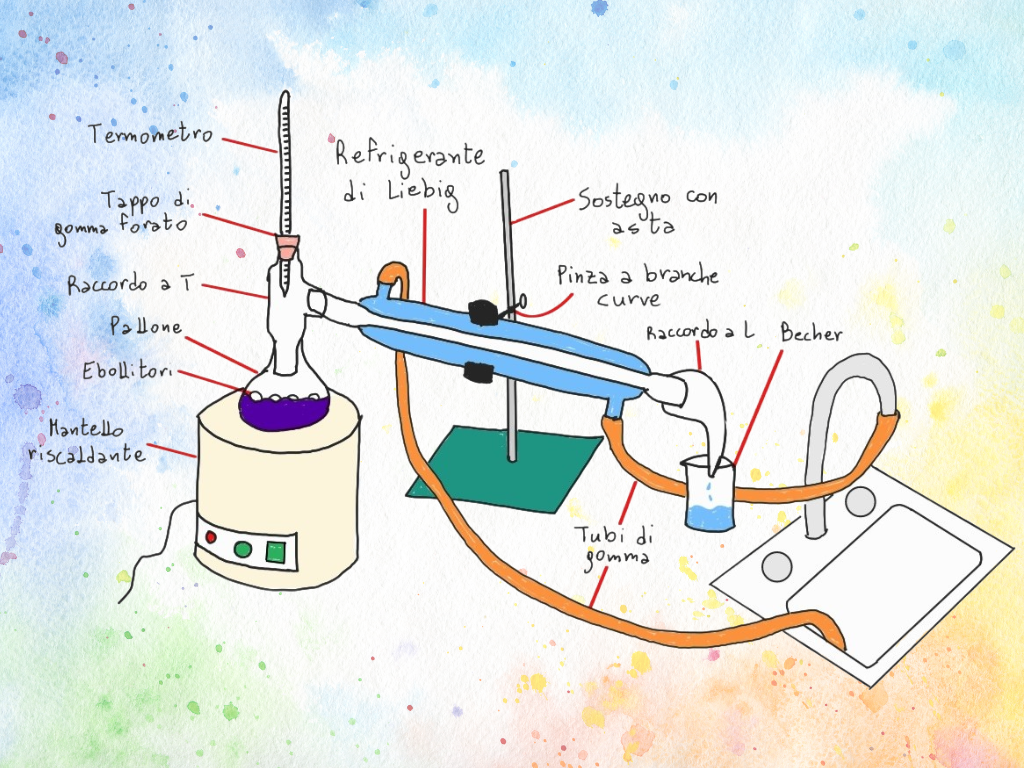 Termometro
Tappo di
gomma forato
Raccordo a T
Pallone
Ebollitori
Mantello
riscaldante
Refrigerante
di Liebig
Sostegno con
asta
Pinza a branche
curve
Raccordo a L
Becher
Tubi di
gomma